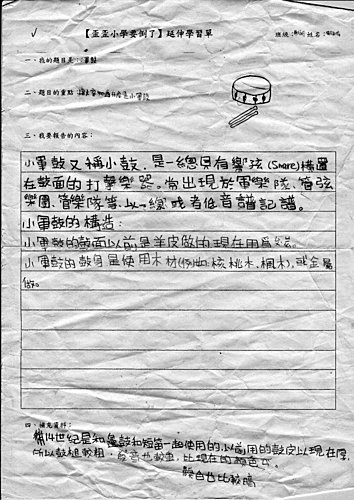 【歪歪小學要倒了】延伸學習單
班級: 姓名:
一、我的題目是:小軍鼓
二、題目的重點:
三、我要報告的內容:
小軍鼓又稱小鼓,是一總具有響弦(Snare)構置
在鼓面的打擊樂器,常出現於軍樂隊、管弦
樂團、管樂隊等,以一線或者低音譜記譜。
小軍鼓的構造:
小軍鼓的鼓面以前是羊皮做的現在用
小軍鼓的鼓身是使用木材(例如:核桃木、楓木),或金屬
做。
四、補充資料:
14世紀是和 鼓和短笛一起使用的,以前用的鼓皮以現在厚,
所以鼓槌較粗,聲音也較重,比現在的
聲音也比較